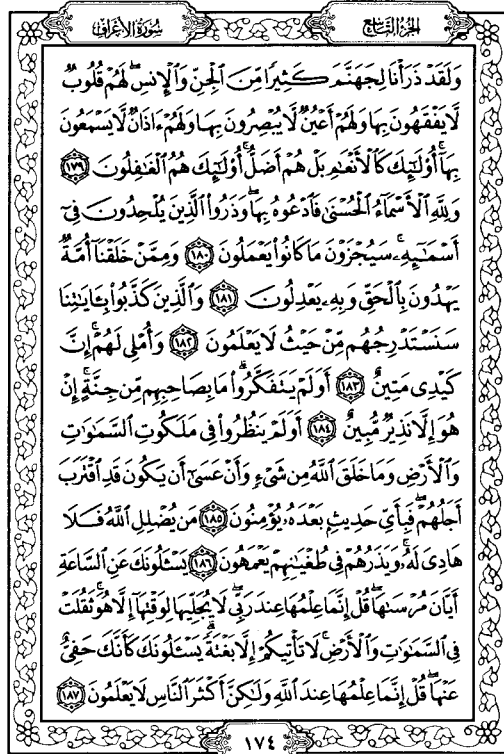 الجزء التاسع
سورة الأعراف
وَلَقَدْ ذَرَأْنَا لِجَهَنَّمَ كَثِيرًا مِّنَ ٱلْجِنِّ وَٱلْإِنسِ ۖ لَهُمْ قُلُوبٌ
لَّا يَفْقَهُونَ بِهَا وَلَهُمْ أَعْيُنٌ لَّا يُبْصِرُونَ بِهَا وَلَهُمْ ءَاذَانٌ لَّا يَسْمَعُونَ
بِهَآ ۚ أُو۟لَٰٓئِكَ كَٱلْأَنْعَٰمِ بَلْ هُمْ أَضَلُّ ۚ أُو۟لَٰٓئِكَ هُمُ ٱلْغَٰفِلُونَ ١٧٩
وَلِلَّهِ ٱلْأَسْمَآءُ ٱلْحُسْنَىٰ فَٱدْعُوهُ بِهَا ۖ وَذَرُوا۟ ٱلَّذِينَ يُلْحِدُونَ فِىٓ
أَسْمَٰٓئِهِۦ ۚ سَيُجْزَوْنَ مَا كَانُوا۟ يَعْمَلُونَ ١٨٠ وَمِمَّنْ خَلَقْنَآ أُمَّةٌ
يَهْدُونَ بِٱلْحَقِّ وَبِهِۦ يَعْدِلُونَ ١٨١ وَٱلَّذِينَ كَذَّبُوا۟ بِـَٔايَٰتِنَا
سَنَسْتَدْرِجُهُم مِّنْ حَيْثُ لَا يَعْلَمُونَ ١٨٢ وَأُمْلِى لَهُمْ ۚ إِنَّ
كَيْدِى مَتِينٌ ١٨٣ أَوَلَمْ يَتَفَكَّرُوا۟ ۗ مَا بِصَاحِبِهِم مِّن جِنَّةٍ ۚ إِنْ
هُوَ إِلَّا نَذِيرٌ مُّبِينٌ ١٨٤ أَوَلَمْ يَنظُرُوا۟ فِى مَلَكُوتِ ٱلسَّمَٰوَٰتِ
وَٱلْأَرْضِ وَمَا خَلَقَ ٱللَّهُ مِن شَىْءٍ وَأَنْ عَسَىٰٓ أَن يَكُونَ قَدِ ٱقْتَرَبَ
أَجَلُهُمْ ۖ فَبِأَىِّ حَدِيثٍۭ بَعْدَهُۥ يُؤْمِنُونَ ١٨٥ مَن يُضْلِلِ ٱللَّهُ فَلَا
هَادِىَ لَهُۥ ۚ وَيَذَرُهُمْ فِى طُغْيَٰنِهِمْ يَعْمَهُونَ ١٨٦ يَسْـَٔلُونَكَ عَنِ ٱلسَّاعَةِ
أَيَّانَ مُرْسَىٰهَا ۖ قُلْ إِنَّمَا عِلْمُهَا عِندَ رَبِّى ۖ لَا يُجَلِّيهَا لِوَقْتِهَآ إِلَّا هُوَ ۚ ثَقُلَتْ
فِى ٱلسَّمَٰوَٰتِ وَٱلْأَرْضِ ۚ لَا تَأْتِيكُمْ إِلَّا بَغْتَةً ۗ يَسْـَٔلُونَكَ كَأَنَّكَ حَفِىٌّ
عَنْهَا ۖ قُلْ إِنَّمَا عِلْمُهَا عِندَ ٱللَّهِ وَلَٰكِنَّ أَكْثَرَ ٱلنَّاسِ لَا يَعْلَمُونَ ١٨٧
١٧٤